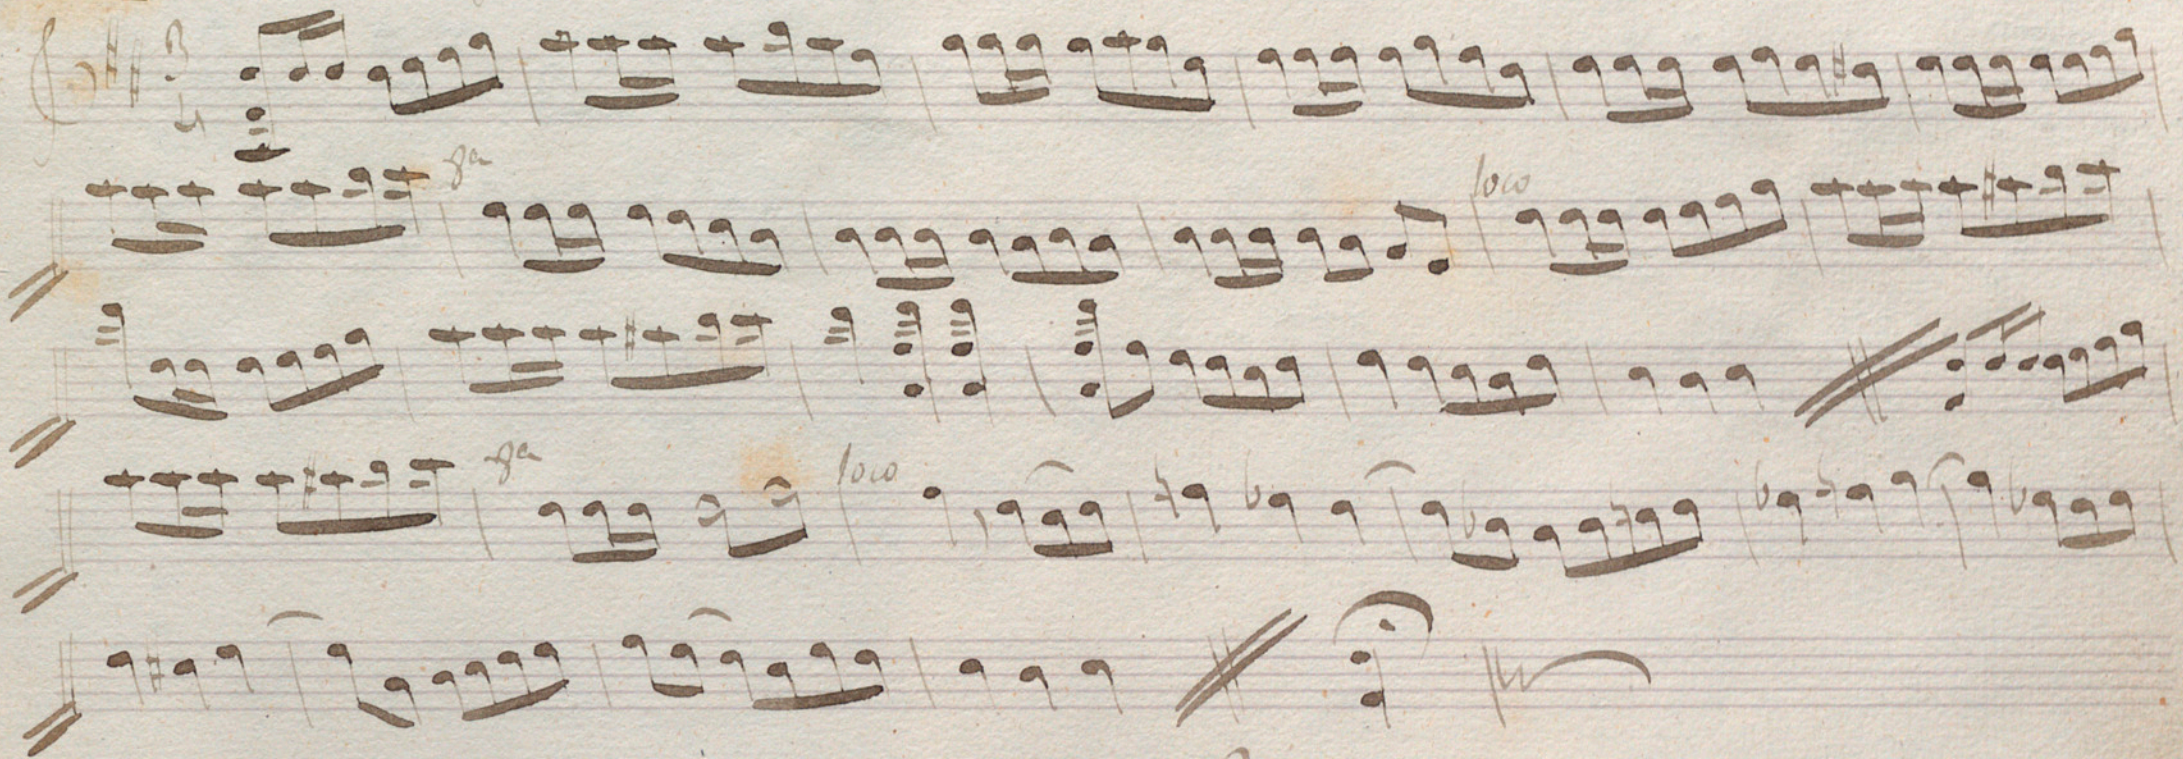 3
4
8a loco
8a loco